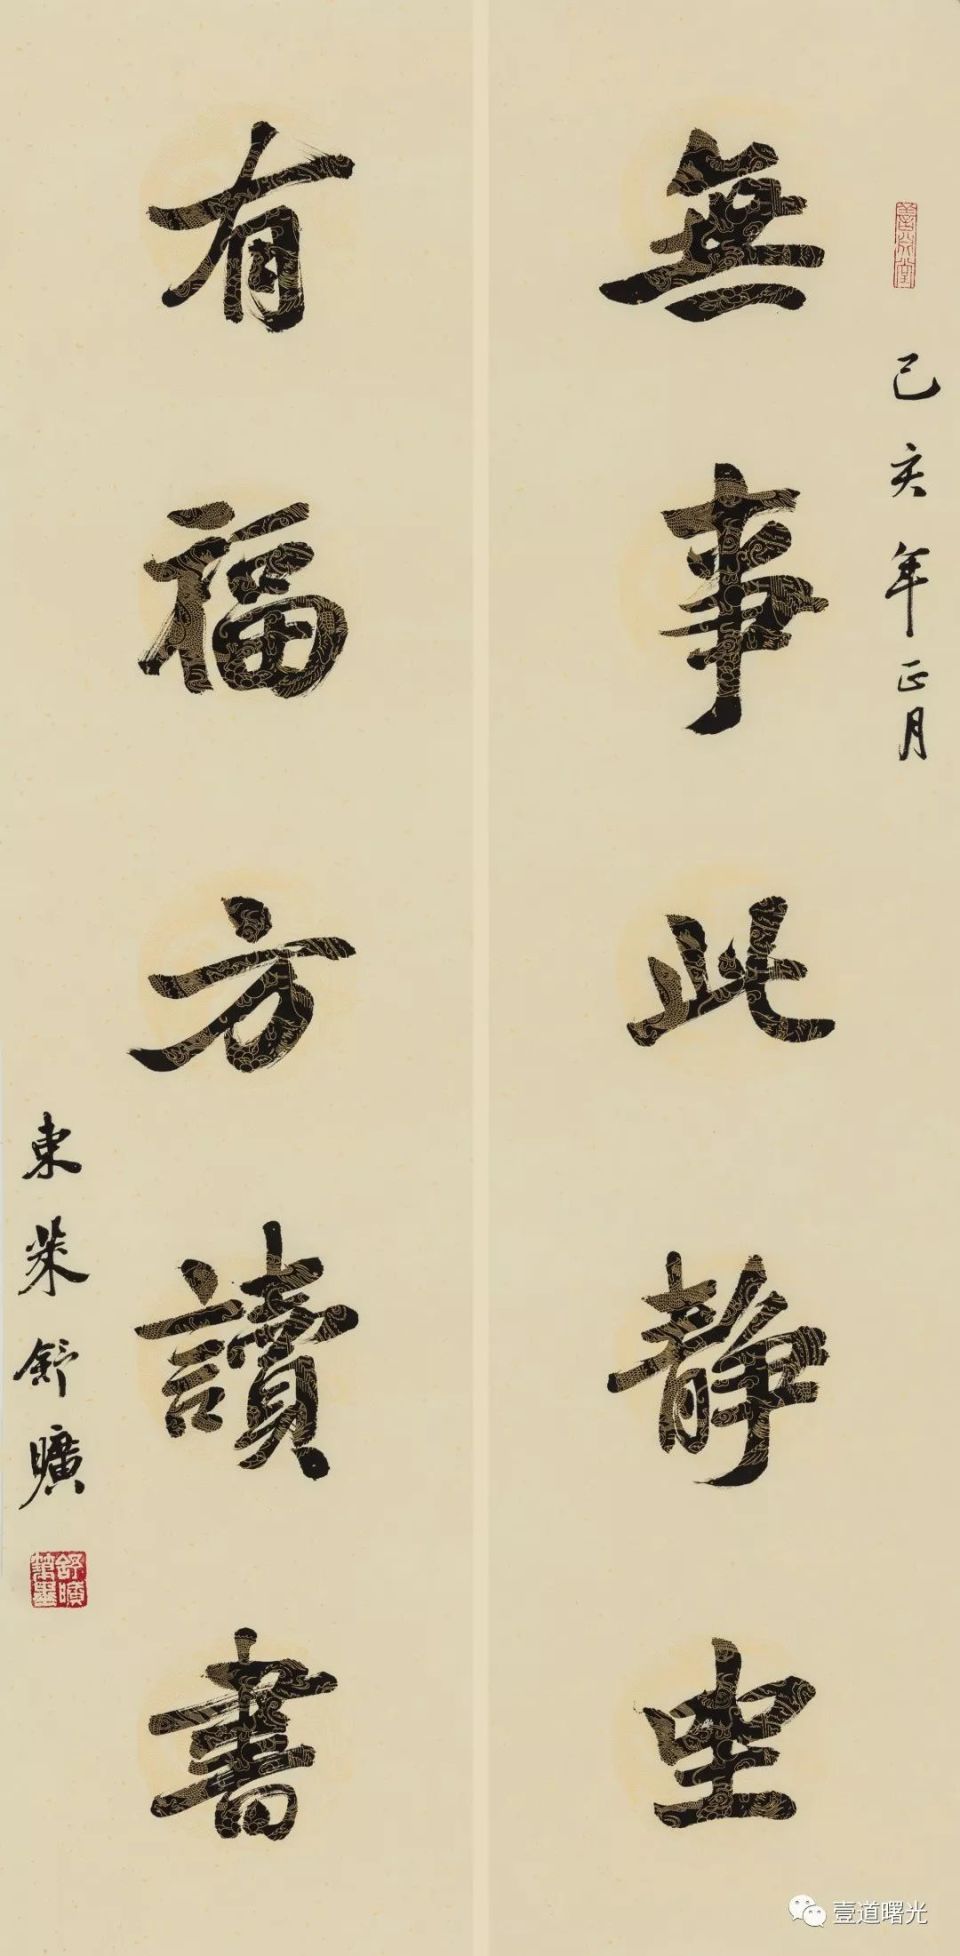 己亥年正月
無事此静坐
有福方讀書
東萊舒曠
舒曠
壹道曙光